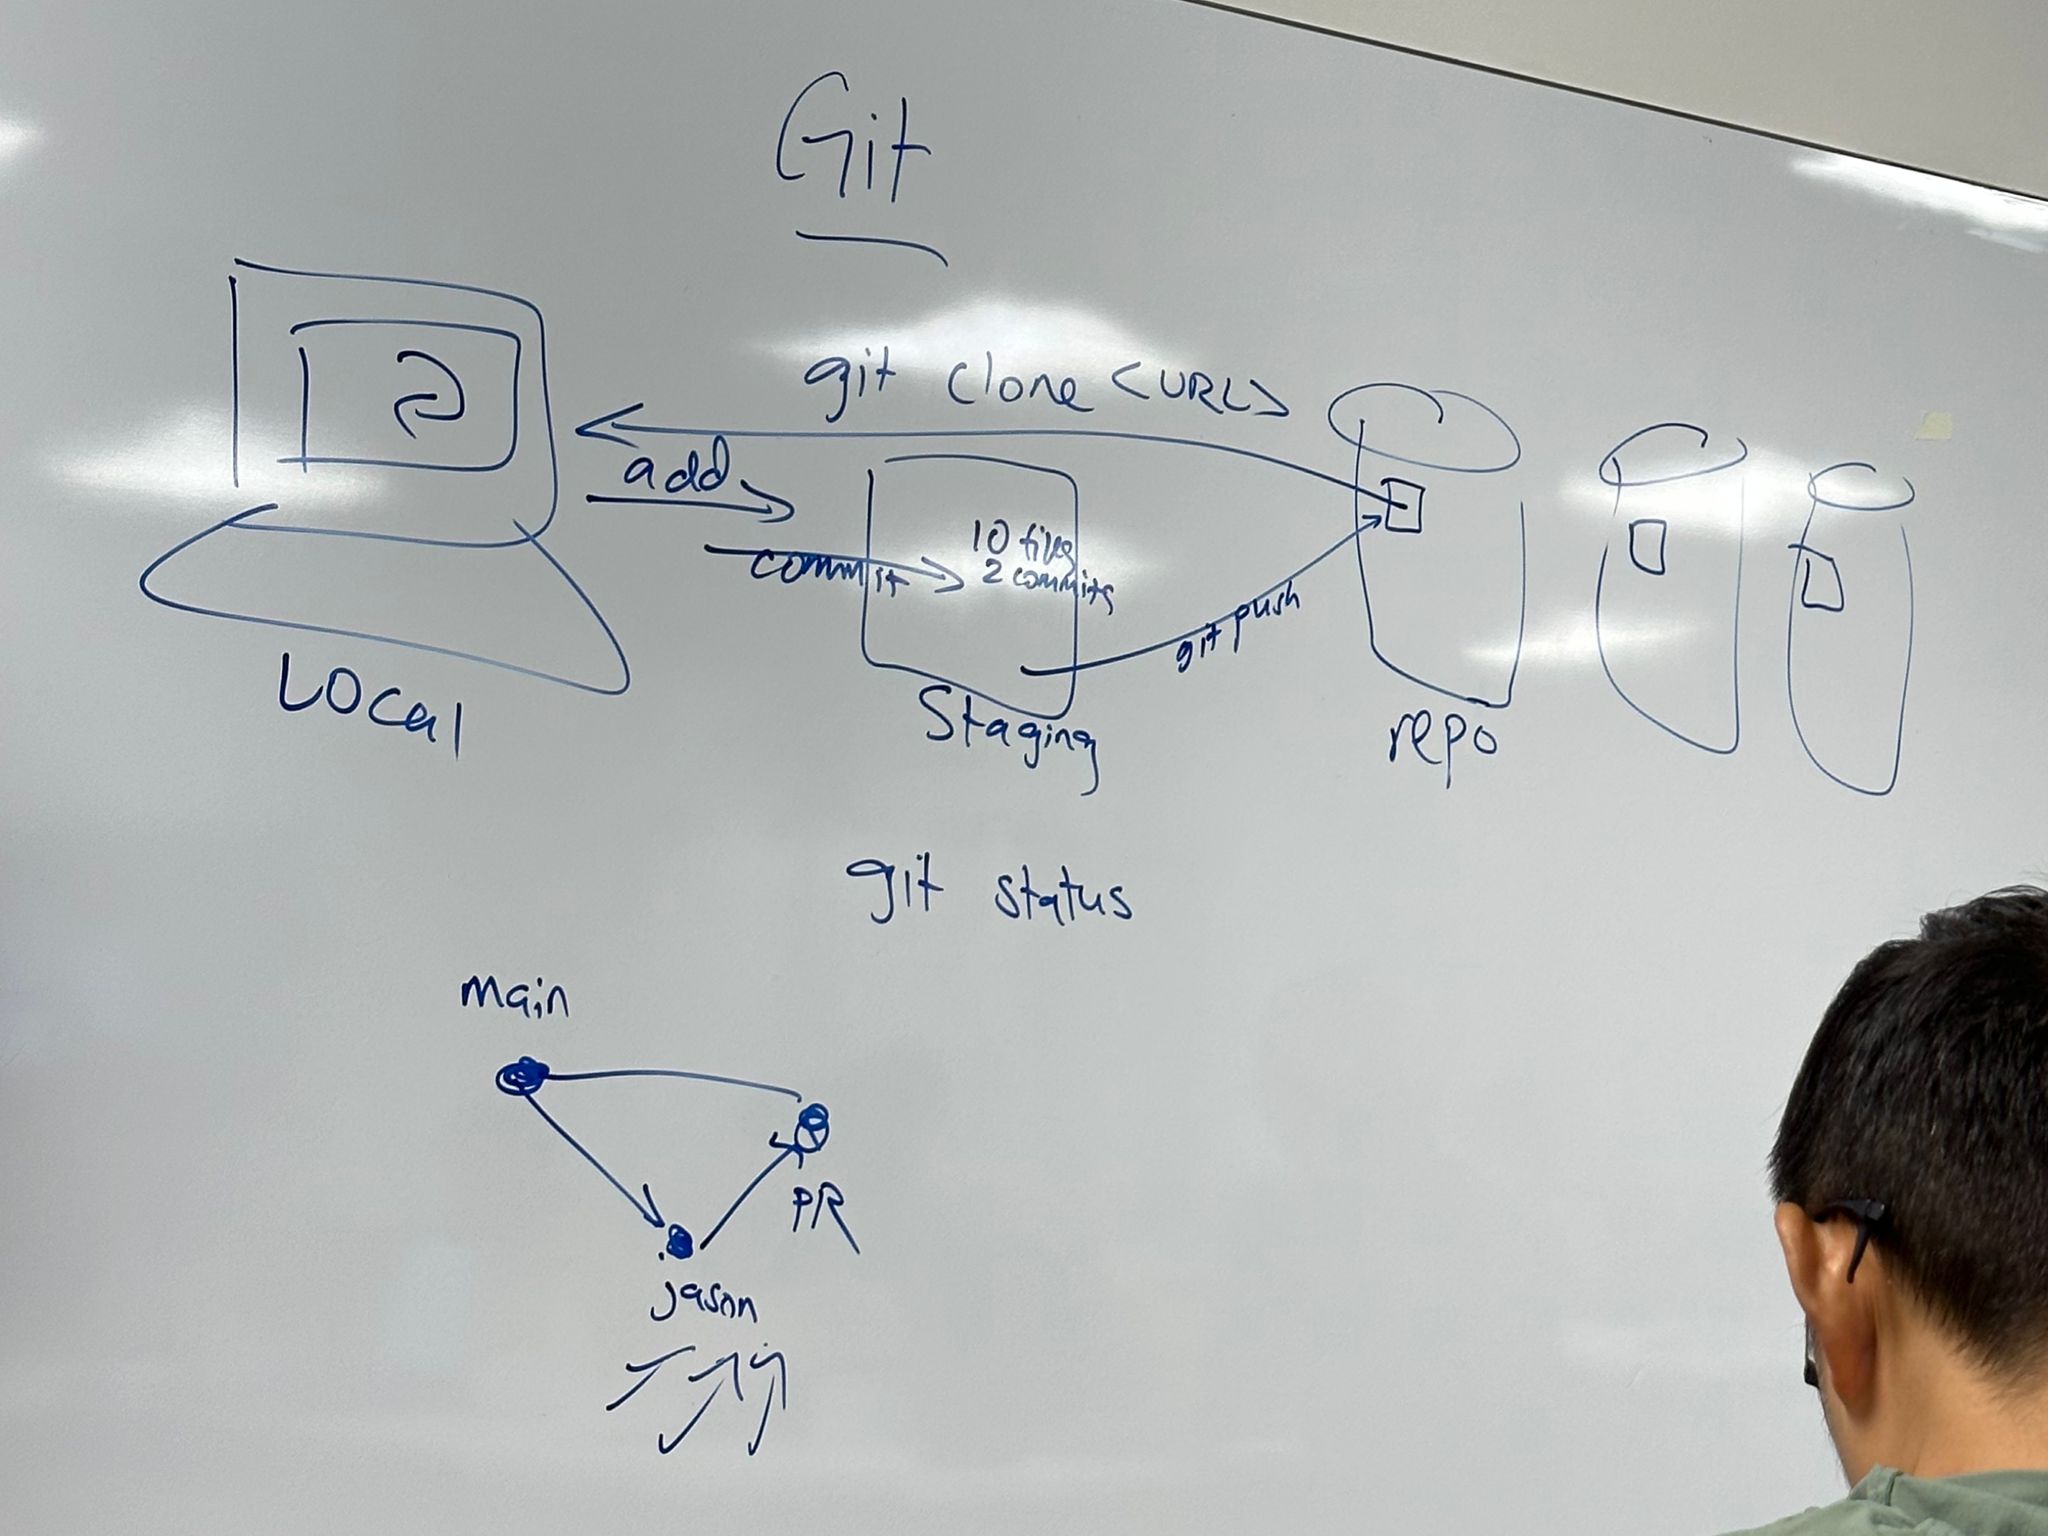 Git
git clone <URL>
add
commit
10 files
2 commits
git push
Local
Staging
repo
git status
main
PR
jason